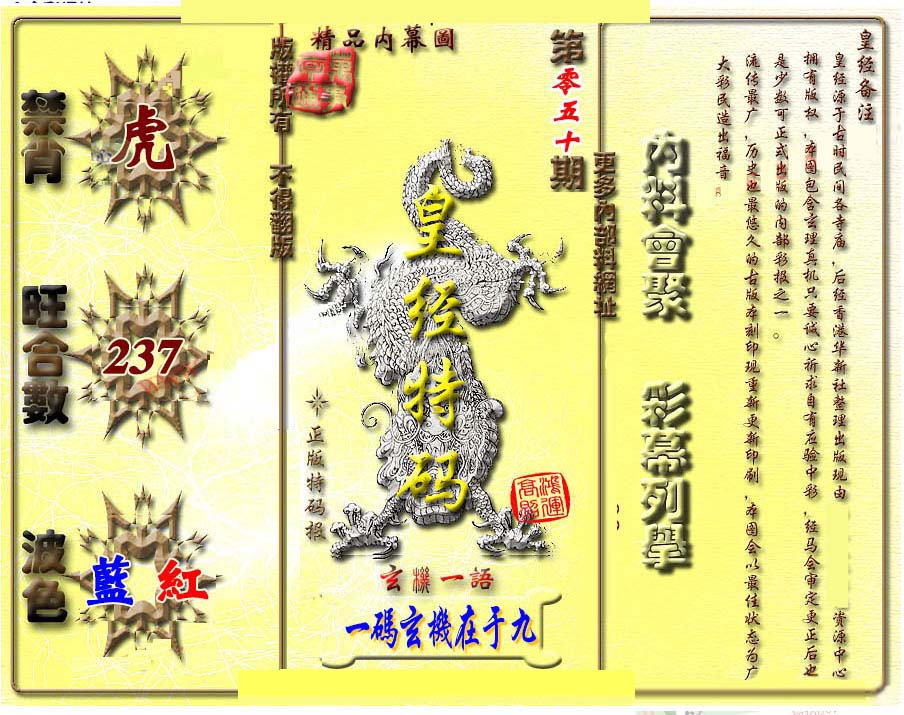 精品内幕圖
第零五十期
版權所有 不得翻版
更多內部料網址
禁肖
虎
旺合數
237
波色
藍 紅
皇经特码
正版特码报
鴻運高照
玄機一語
一碼玄機在于九
內料會聚
彩幕列舉
皇经备注
皇经源于古时民间各寺庙,后经香港华新社整理出版现由 资源中心
拥有版权,本图包含玄理真机只要诚心祈求自有应验中彩,经马会审定更正后也
是少数可正式出版的内部彩报之一。
流传最广,历史也最悠久的古版本刻印现重新更新印刷,本图会以最佳状态为广
大彩民造出福音